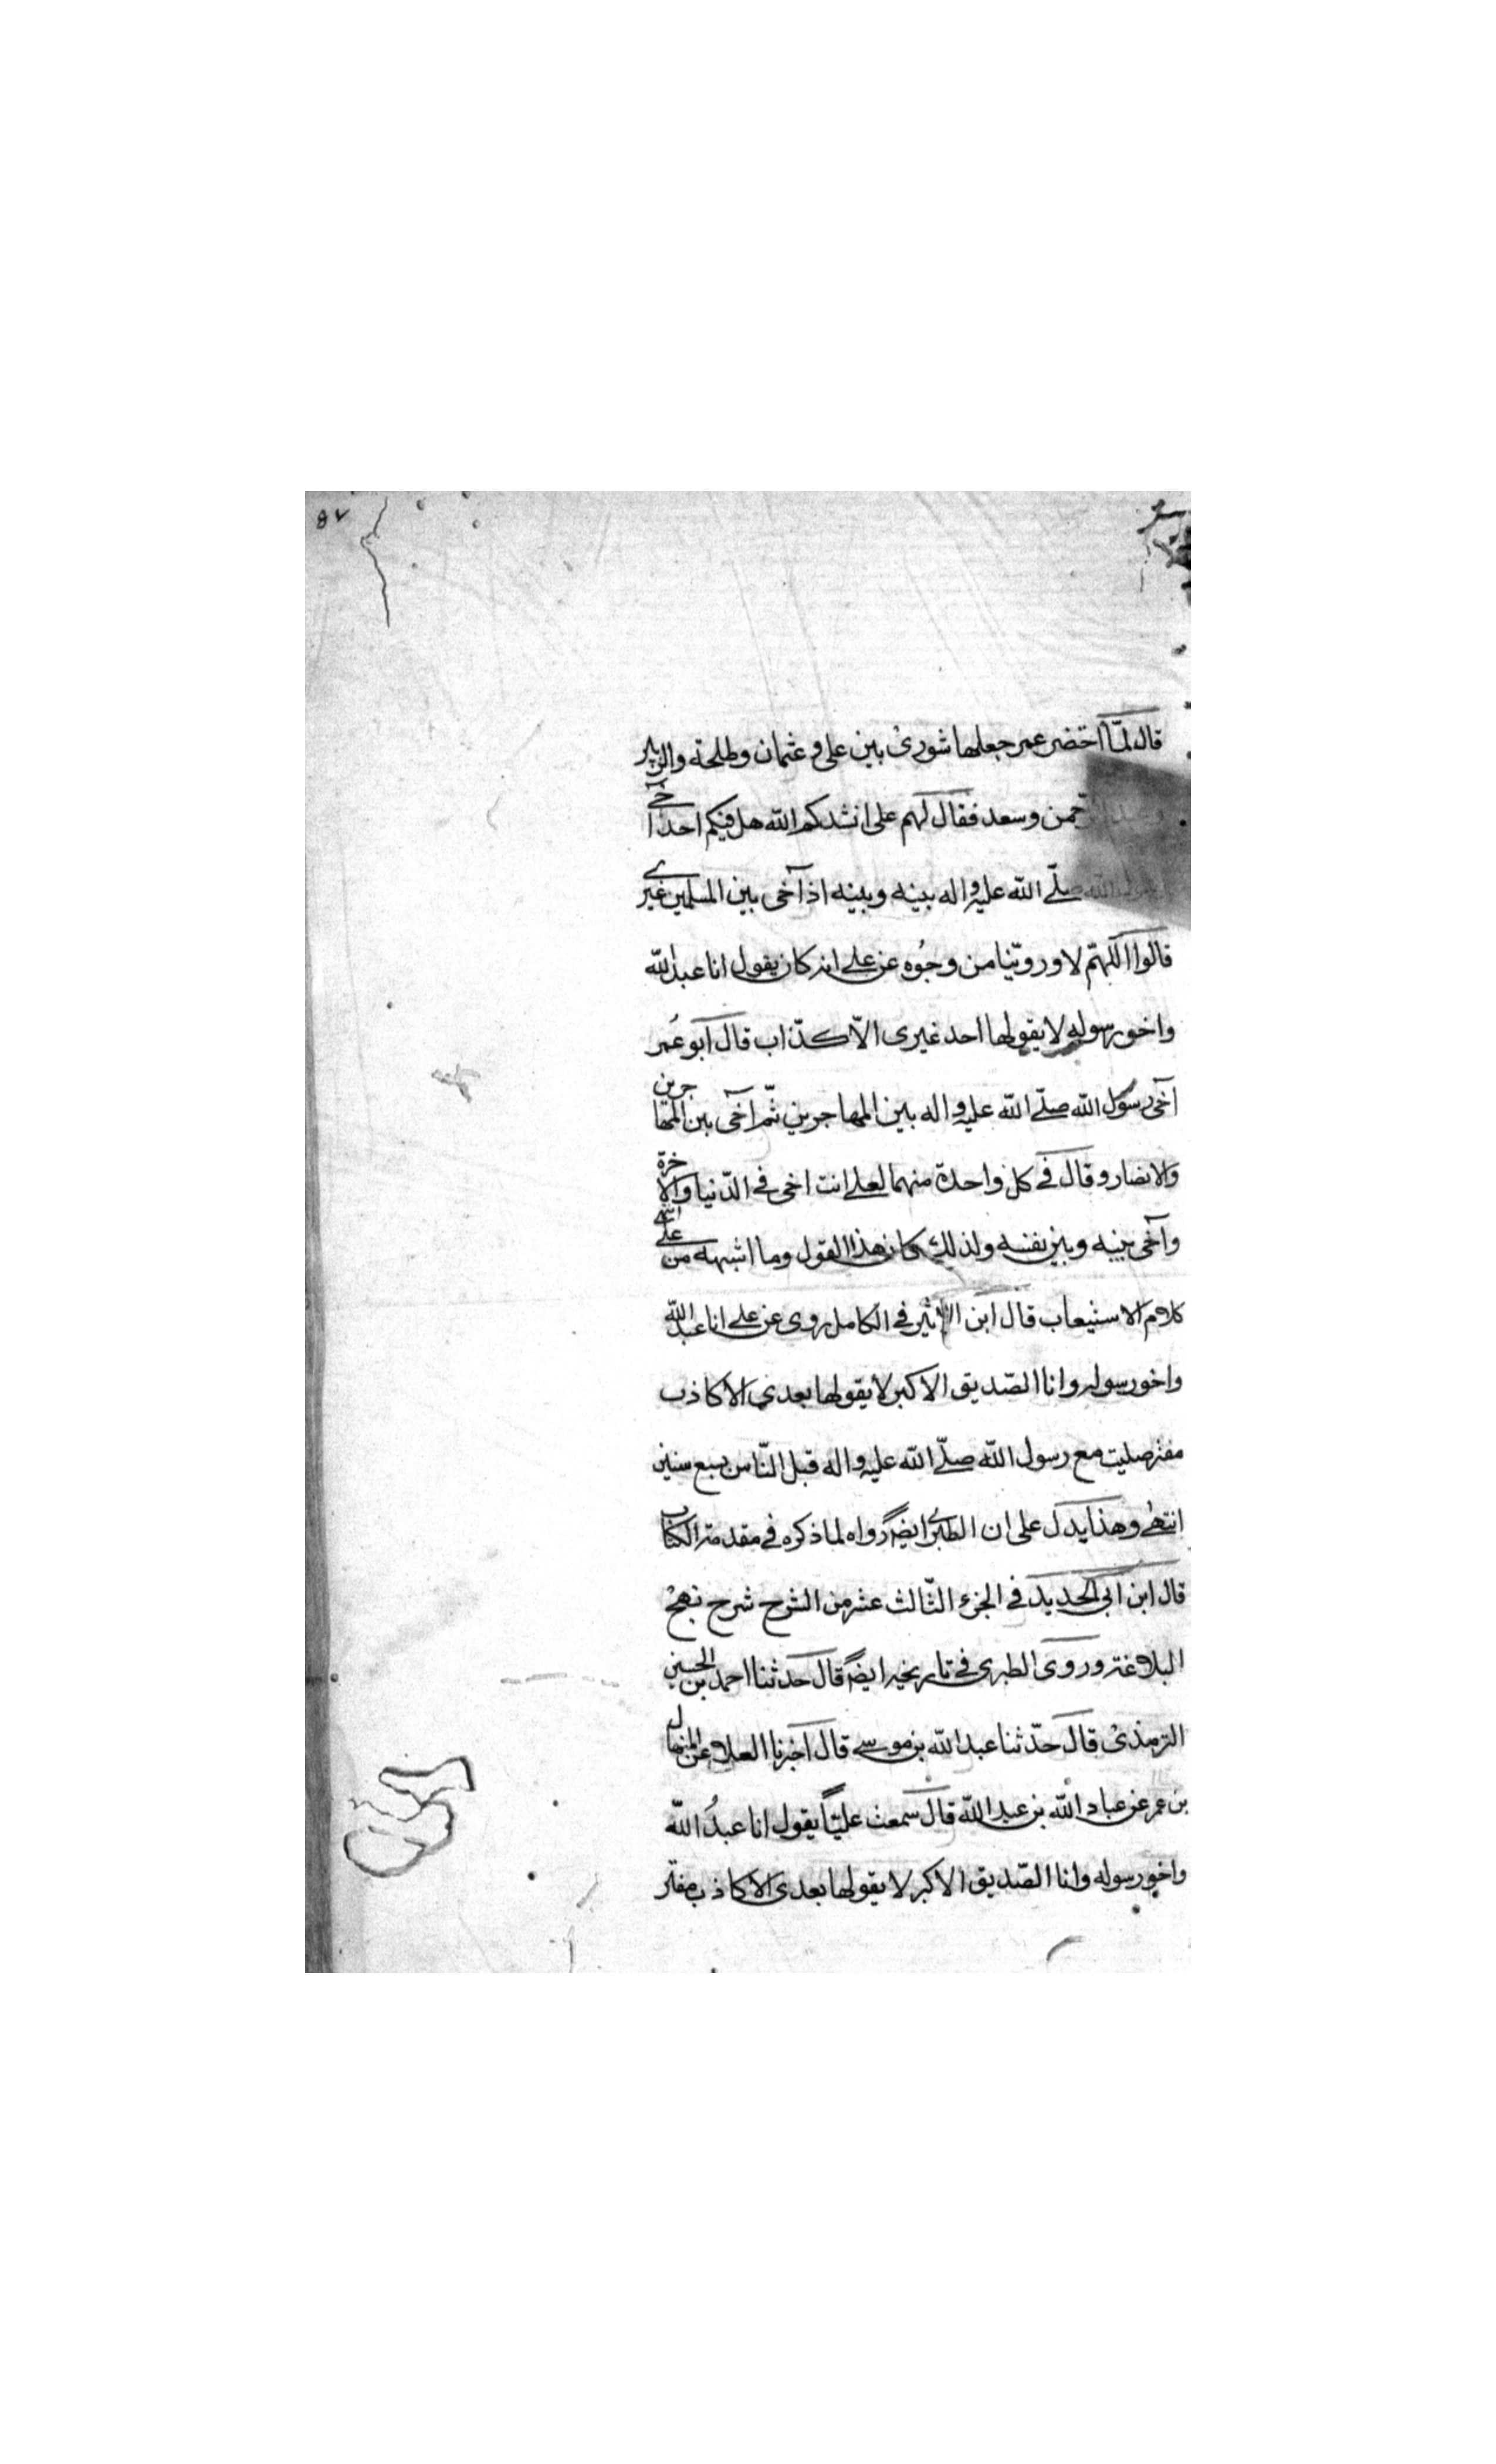 ٥٧
قال لمّا احتضر عمر جعلها شورى بين على و عثمان وطلحة والزبير
وعبد الرّحمن وسعد فقال لهم على انشدكم الله هل فيكم احد اخى
رسول الله صلّے الله عليه واله بينه وبينه اذ آخى بين المسلمين غيرے
قالوا اللّهمّ لا وروّينا من وجُوه عن علے انه كان يقول انا عبد الله
واخو رسوله لا يقولها احد غيرى الّا كذّاب قال ابو عُمر
آخى رسول الله صلّے الله عليه واله بين المهاجرين ثمّ آخى بين المهاجرين
والانصار و قال فے كل واحدة منهما لعلے انت اخى فے الدّنيا والاخرة
وآخى بينه وبين نفسه ولذلك كان هذا القول وما اشبهه من علے انتهى
كلام الاستيعاب قال ابن الاثير فے الكامل روى عن علے انا عبد الله
واخو رسوله وانا الصّديق الاكبر لا يقولها بعدى الا كاذب
مفتر صليت مع رسول الله صلّے الله عليه واله قبل النّاس بسبع سنين
انتهى وهذا يدل على ان الطبرے ايضًا رواه لما ذكره فے مقدمة الكتاب
قال ابن ابى الحديد فے الجزء الثّالث عشر من الشرح شرح نهج
البلاغة وروى الطبرى فے تاريخه ايضًا قال حدثنا احمد بن الحسين
الترمذى قال حدّثنا عبد الله بن موسے قال اخبرنا العلا عن المنهال
بن عمر عن عباد الله بن عبد الله قال سمعت عليّاً يقول انا عبدُ الله
واخو رسوله وانا الصّديق الاكبر لا يقولها بعدى الا كاذب مفتر